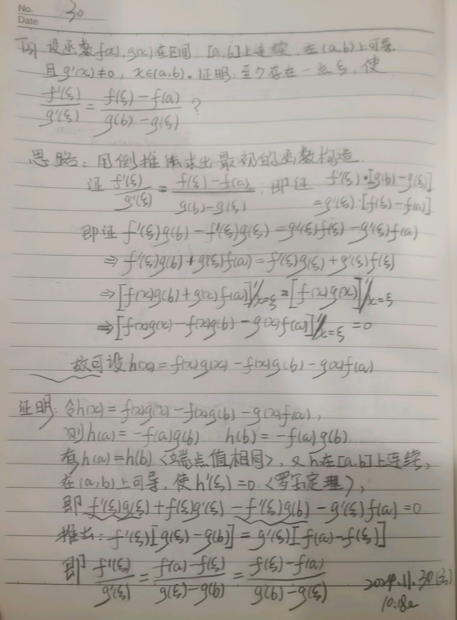 No. 30
Date
例 设函数f(x), g(x)在区间 [a,b]上连续, 在(a,b)上可导
且g'(x)≠0, x∈(a,b). 证明: 至少存在一点ξ, 使
f'(ξ)/g'(ξ) = (f(ξ)-f(a))/(g(b)-g(ξ)) ?
思路: 用倒推法求出最初的函数构造.
证 f'(ξ)/g'(ξ) = (f(ξ)-f(a))/(g(b)-g(ξ)), 即证 f'(ξ)·[g(b)-g(ξ)]
=g'(ξ)·[f(ξ)-f(a)]
即证 f'(ξ)g(b)-f'(ξ)g(ξ)=g'(ξ)f(ξ)-g'(ξ)f(a)
⇒ f'(ξ)g(b)+g'(ξ)f(a)=f'(ξ)g(ξ)+g'(ξ)f(ξ)
⇒[f(x)g(b)+g(x)f(a)]'|x=ξ=[f(x)g(x)]'|x=ξ
⇒[f(x)g(x)-f(x)g(b)-g(x)f(a)]'|x=ξ=0
故可设h(x)=f(x)g(x)-f(x)g(b)-g(x)f(a)
证明: 令h(x)=f(x)g(x)-f(x)g(b)-g(x)f(a),
则h(a)=-f(a)g(b) h(b)=-f(a)g(b)
有h(a)=h(b)<端点值相同>, 又h在[a,b]上连续,
在(a,b)上可导, 使h'(ξ)=0<罗尔定理>,
即 f'(ξ)g(ξ)+f(ξ)g'(ξ)-f'(ξ)g(b)-g'(ξ)f(a)=0
推出: f'(ξ)[g(ξ)-g(b)]=g'(ξ)[f(a)-f(ξ)]
即 f'(ξ)/g'(ξ) = (f(a)-f(ξ))/(g(ξ)-g(b)) = (f(ξ)-f(a))/(g(b)-g(ξ))
2024.11.30
10:18